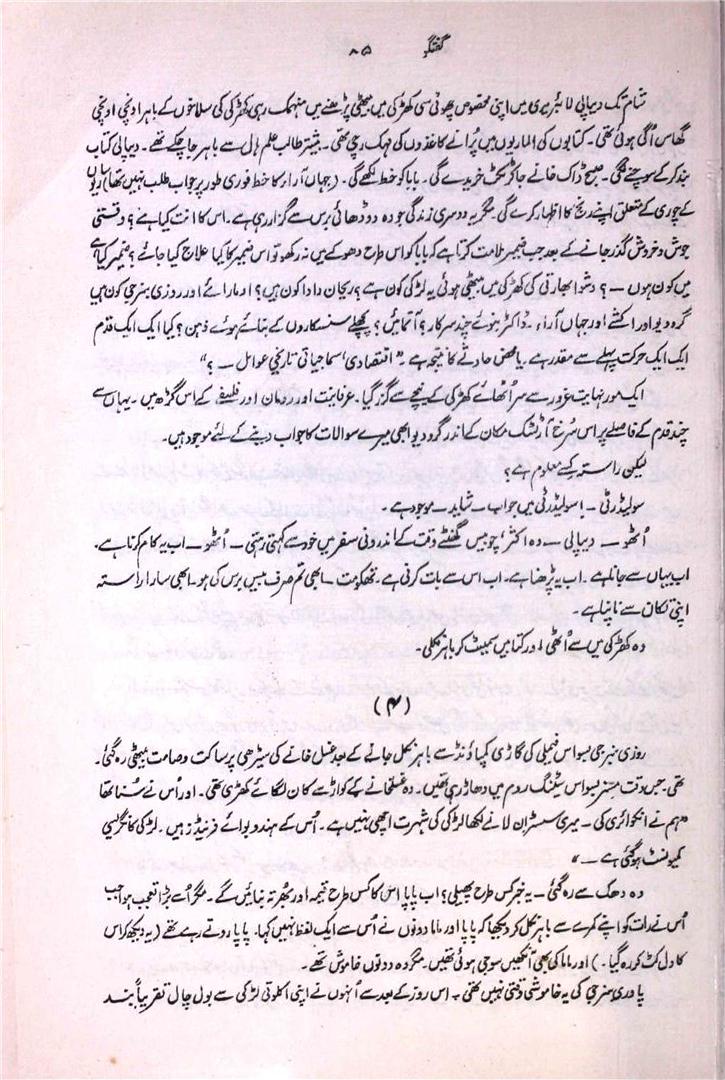 گفتگو ۸۵
شام تک دیپالی لائبریری میں اپنی مخصوص چھوٹی سی کھڑکی میں بیٹھی پڑھنے میں منہمک رہی کھڑکی کی سلاخوں کے باہر اونچی اونچی
گھاس اُگی ہوئی تھی۔ کتابوں کی الماریوں میں پُرانے کاغذوں کی مہک رچی تھی۔ بیشتر طالب علم ہال سے باہر جا چکے تھے۔ دیپالی کتاب
بند کر کے سوچنے لگی۔ صبح ڈاک خانے جا کر ٹکٹ خریدے گی۔ بابا کو خط لکھے گی۔ (جہاں آراء کا خط فوری طور پر جواب طلب نہیں تھا) ساریوں
کے چوری کے متعلق اپنے رنج کا اظہار کرے گی۔ مگر یہ دوسری زندگی جو وہ دو ڈھائی برس سے گزار رہی ہے۔ اس کا انت کیا ہے؟ وقتی
جوش و خروش گذر جانے کے بعد جب ضمیر ملامت کرتا ہے کہ بابا کو اس طرح دھوکے میں نہ رکھو تو اس ضمیر کا کیا علاج کیا جائے؟ ضمیر کیا ہے
میں کون ہوں ــ ؟ وشوا بھارتی کی کھڑکی میں بیٹھی ہوئی یہ لڑکی کون ہے؟ ریحان دادا کون ہیں؟ اوما رائے اور روزی بنرجی کون ہیں
گرو دیو اور اکشے اور جہاں آراء۔ ڈاکٹر بنوئے چندر سرکار؟ آتمائیں؟ پچھلے سنسکاروں کے بنائے ہوئے ذہن؟ کیا ایک ایک قدم
ایک ایک حرکت پہلے سے مقدر ہے یا محض حادثے کا نتیجہ ہے ”اقتصادی‘ سماجیاتی تاریخی عوامل ــ ؟“
ایک مور نہایت غرور سے سر اُٹھائے کھڑکی کے نیچے سے گزر گیا۔ عرفانیت اور رومان اور فلسفے کے اس گڑھ میں۔ یہاں سے
چند قدم کے فاصلے پر اس سُرخ آرٹسٹک مکان کے اندر گرو دیو ابھی میرے سوالات کا جواب دینے کے لئے موجود ہیں۔
لیکن راستہ کسے معلوم ہے؟
سولیڈرٹی ــ اسولیڈرٹی میں جواب ــ شاید ــ موجود ہے۔
اُٹھو ــ دیپالی ــ وہ اکثر‘ چوبیس گھنٹے وقت کے اندرونی سفر میں خود سے کہتی رہتی ــ اُٹھو ــ اب یہ کام کرنا ہے۔
اب یہاں سے جانا ہے۔ اب یہ پڑھنا ہے۔ اب اس سے بات کرنی ہے۔ تھکو مت ــ ابھی تم صرف بیس برس کی ہو۔ ابھی سارا راستہ
اپنی تکان سے ناپنا ہے۔
وہ کھڑکی میں سے اُٹھی اور کتابیں سمیٹ کر باہر نکلی۔
(۴)
روزی بنرجی بسواس فیملی کی گاڑی کمپاؤنڈ سے باہر نکل جانے کے بعد غسل خانے کی سیڑھی پر ساکت و صامت بیٹھی رہ گئی۔
تھی۔ جس وقت مسز بسواس سٹنگ روم میں دھاڑ رہی تھیں۔ وہ غسلخانے کے کواڑ سے کان لگائے کھڑی تھی۔ اور اُس نے سُنا تھا
”ہم نے انکوائری کی ــ میری سسٹر ان لا نے لکھا لڑکی کی شہرت اچھی نہیں ہے۔ اُس کے ہندو بوائے فرینڈز ہیں۔ لڑکی کانگریسی
کمیونسٹ ہو گئی ہے ــ “
وہ دھک سے رہ گئی ــ یہ خبر کس طرح پھیلی؟ اب پاپا اس کا کس طرح قیمہ اور بھرتہ بنائیں گے۔ مگر اُسے بڑا تعجب ہوا جب
اُس نے رات کو اپنے کمرے سے باہر نکل کر دیکھا کہ پاپا اور ماما دونوں نے اُس سے ایک لفظ نہیں کہا۔ پاپا روتے رہے تھے (یہ دیکھ کر اس
کا دل کٹ کر رہ گیا۔) اور ماما کی بھی آنکھیں سوجی ہوئی تھیں۔ مگر وہ دونوں خاموش تھے۔
پادری بنرجی کی یہ خاموشی وقتی نہیں تھی۔ اس روز کے بعد سے اُنہوں نے اپنی اکلوتی لڑکی سے بول چال تقریباً بند